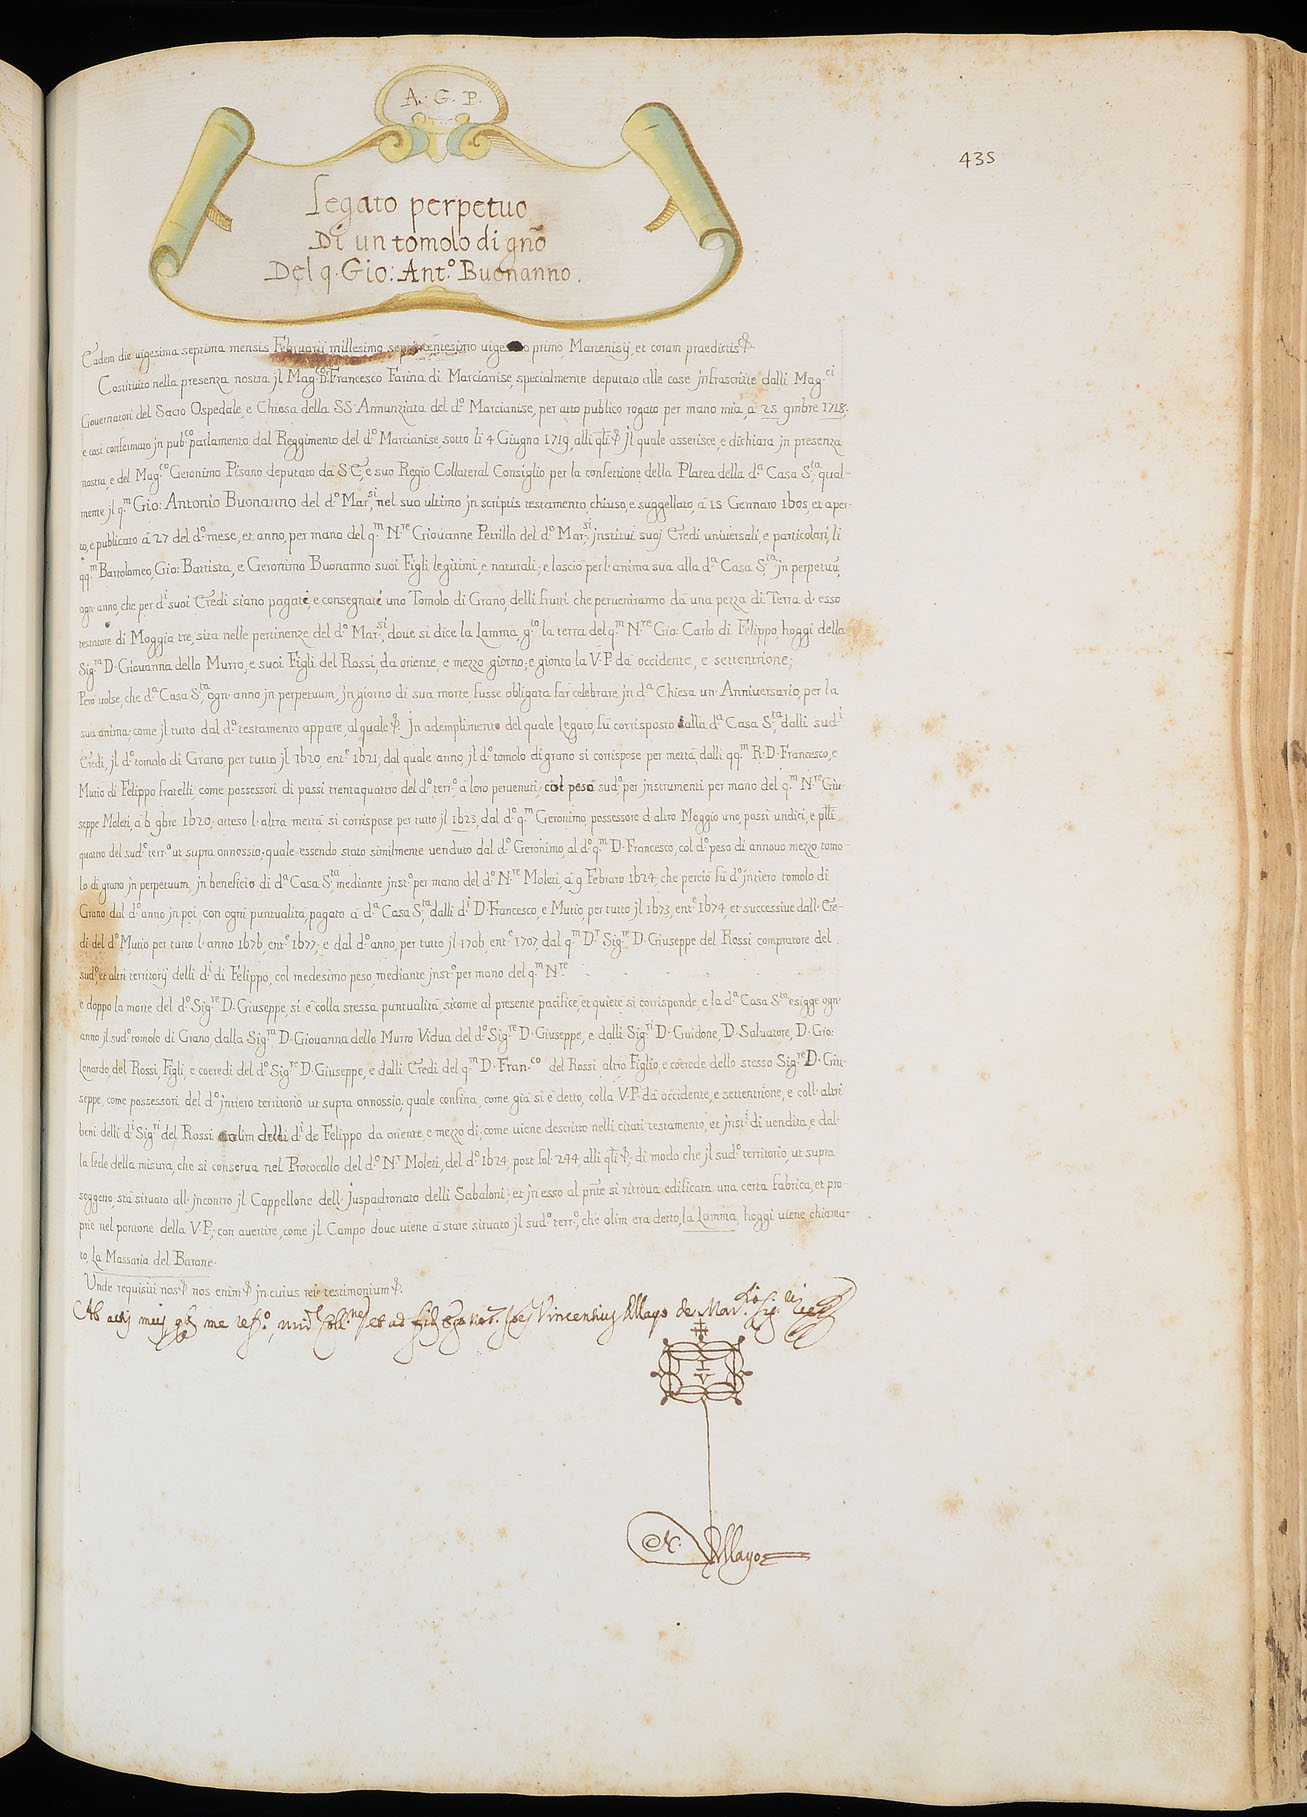 A. G. P.
435
Legato perpetuo
Di un tomolo di gnõ
Del q. Gio: Ant.º Buonanno.
Eadem die vigesima septima mensis Februarij millesimo septingentesimo vige primo, Martenisij, et coram praedictis &.
Costituito nella presenza nostra jl Mag.co Dr. Francesco Farina di Marcianise, specialmente deputato alle cose jnfrascritte dalli Mag.ci
Governatori del Sacro Ospedale, e Chiesa della SS. Annunziata del d.º Marcianise, per atto publico rogato per mano mia, à 25 9mbre 1718.
e così confermato jn pub.co parlamento dal Reggimento del d.º Marcianise, sotto li 4 Giugno 1719, alli qlĩ & jl quale asserisce, e dichiara jn presenza
nostra, e del Mag.co Geronimo Pisano deputato da S.E, e suo Regio Collateral Consiglio per la confettione della Platea della d.a Casa S.ta, qual-
mente jl q.m Gio: Antonio Buonanno del d.º Mar.si, nel suo ultimo jn scriptis testamento, chiuso, e suggellato, à 15 Gennaro 1605, et aper-
to, e publicato à 27 del d.º mese, et anno, per mano del q.m N.re Giovanne Petrillo del d.º Mar.si, jnstituì suoj Eredi universali, e particolari, li
qq.m Bartolomeo, Gio: Battista, e Geronimo Buonanno suoi Figli legitimi, e naturali; e lasciò per l'anima sua alla d.a Casa S.ta jn perpetuũ,
ogn'anno, che per d.i suoi Eredi siano pagati, e consegnati uno Tomolo di Grano, delli frutti che perveniranno dà una pezza di Terra d'esso
testatore di Moggia tre, sita nelle pertinenze del d.º Mar.si, dove si dice la Lamma, g.to la terra del q.m N.re Gio: Carlo di Felippo, hoggi della
Sig.ra D. Giovanna dello Murro, e suoi Figli del Rossi, da oriente, e mezzo giorno; e gionto la V.P. dà occidente, e settentrione;
Però volse, che d.a Casa S.ta, ogn'anno jn perpetuum, jn giorno di sua morte, fusse obligata far celebrare jn d.a Chiesa un'Anniversario, per la
sua anima; come jl tutto dal d.º testamento appare, al quale &. Jn adempimento del quale legato, fù corrisposto alla d.a Casa S.ta, dalli sud.i
Eredi, jl d.º tomolo di Grano, per tutto jl 1620, ent.e 1621; dal quale anno, jl d.º tomolo di grano si corrispose per mettà, dalli qq.m R. D. Francesco, e
Mutio di Felippo fratelli, come possessori di passi trentaquattro del d.º terr.º, à loro pervenuti, col peso sud.º, per jnstrumenti per mano del q.m N.re Giu-
seppe Moleti, à 6 9bre 1620; atteso l'altra mettà si corrispose per tutto jl 1623, dal d.º q.m Geronimo, possessore d'altro Moggio uno, passi undici, e
quattro del sud.º terr.º ut supra onnossio; quale essendo stato similmente venduto dal d.º Geronimo, al d.º q.m D. Francesco, col d.º peso di annuo mezzo tomo-
lo di grano jn perpetuum, jn beneficio di d.a Casa S.ta, mediante jnst.º per mano del d.º N.re Moleti, à 9 Febraro 1624; che perciò fù d.º jntiero tomolo di
Grano dal d.º anno jn poi, con ogni puntualità, pagato à d.a Casa S.ta, dalli d.i D. Francesco, e Mutio, per tutto jl 1673, ent.e 1674, et successive dall'Ere-
di del d.º Mutio per tutto l'anno 1676, ent.e 1677; e dal d.º anno, per tutto jl 1706, ent.e 1707, dal q.m D.r Sig.re D. Giuseppe del Rossi compratore del
sud.º, et altri territorij delli d.i di Felippo, col medesimo peso, mediante jnst.º per mano del q.m N.re
e doppo la morte del d.º Sig.re D. Giuseppe, si è colla stessa puntualità, sicome al presente pacifice, et quiete si corrisponde, e la d.a Casa S.ta esigge ogn'
anno jl sud.º tomolo di Grano, dalla Sig.ra D. Giovanna dello Murro Vidua del d.º Sig.re D. Giuseppe, e dalli Sig.ri D. Guidone, D. Salvatore, D. Gio:
Lonardo, del Rossi, Figli, e coeredi del d.º Sig.re D. Giuseppe, e dalli Eredi del q.m D. Fran.co del Rossi altro Figlio, e coerede dello stesso Sig.re D. Giu-
seppe, come possessori, del d.º jntiero territorio ut supra onnossio; quale confina, come già si è detto, colla V.P. dà occidente, e settentrione, e coll'altri
beni delli d.i Sig.ri del Rossi olim delli d.i de Felippo da oriente, e mezzo dì; come viene descritto nelli citati testamento, et jnst.i di vendita, e dal-
la fede della misura, che si conserva nel Protocollo del d.º N.r Moleti, del d.º 1624, post fol. 244, alli qlĩ &; di modo che jl sud.º territorio, ut supra
soggetto, stà situato all'jncontro jl Cappellone dell'juspadronato delli Sabaloni; et jn esso al pnte si ritrova edificata una certa fabrica, et pro-
prie nel pontone della V.P; con avertire, come jl Campo dove viene à stare situato jl sud.º terr.º, che olim era detto, la Lamma, hoggi viene chiama-
to, la Massaria del Barone.
Unde requisiti nos & nos enim & jn cuius rei testimonium &.
Ab actis meis me et ad fidem Ego Not. Vincentius Allayo de Mar.
N. Allayo